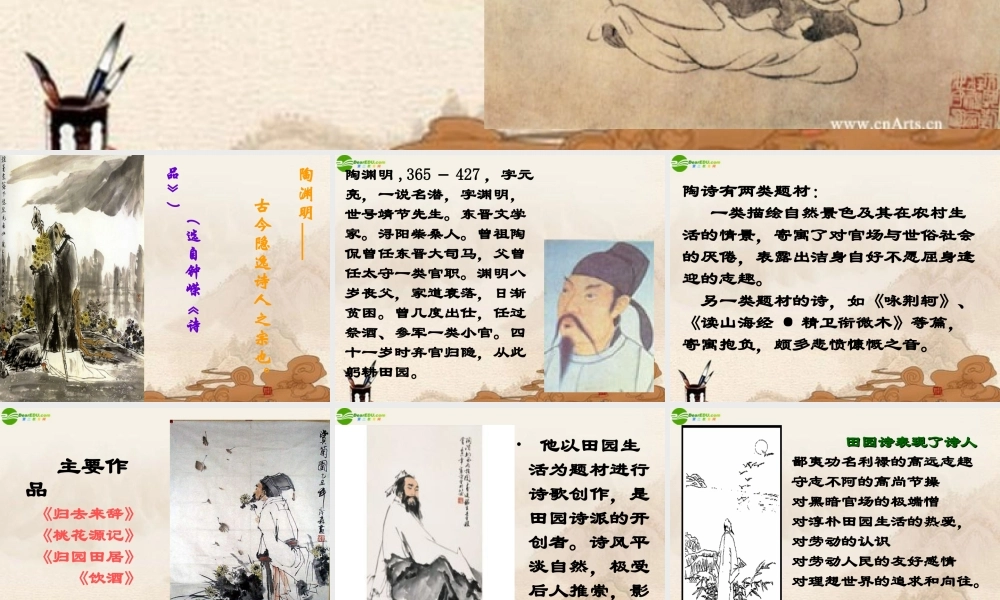 www.cnArts.cn
陶渊明——
古今隐逸诗人之宗也。
（选自钟嵘《诗
品》）
陶渊明,365－427，字元
亮，一说名潜，字渊明，
世号靖节先生。东晋文学
家。浔阳柴桑人。曾祖陶
侃曾任东晋大司马，父曾
任太守一类官职。渊明八
岁丧父，家道衰落，日渐
贫困。曾几度出仕，任过
祭酒、参军一类小官。四
十一岁时弃官归隐，从此
躬耕田园。
陶诗有两类题材：
一类描绘自然景色及其在农村生
活的情景，寄寓了对官场与世俗社会
的厌倦，表露出洁身自好不愿屈身逢
迎的志趣。
另一类题材的诗，如《咏荆轲》、
《读山海经 • 精卫衔微木》等篇，
寄寓抱负，颇多悲愤慷慨之音。
主要作
品
《归去来辞》
《桃花源记》
《归园田居》
《饮酒》
• 他以田园生
活为题材进行
诗歌创作，是
田园诗派的开
创者。诗风平
淡自然，极受
后人推崇，影
田园诗表现了诗人
鄙夷功名利禄的高远志趣
守志不阿的高尚节操
对黑暗官场的极端憎
对淳朴田园生活的热爱，
对劳动的认识
对劳动人民的友好感情
对理想世界的追求和向往。